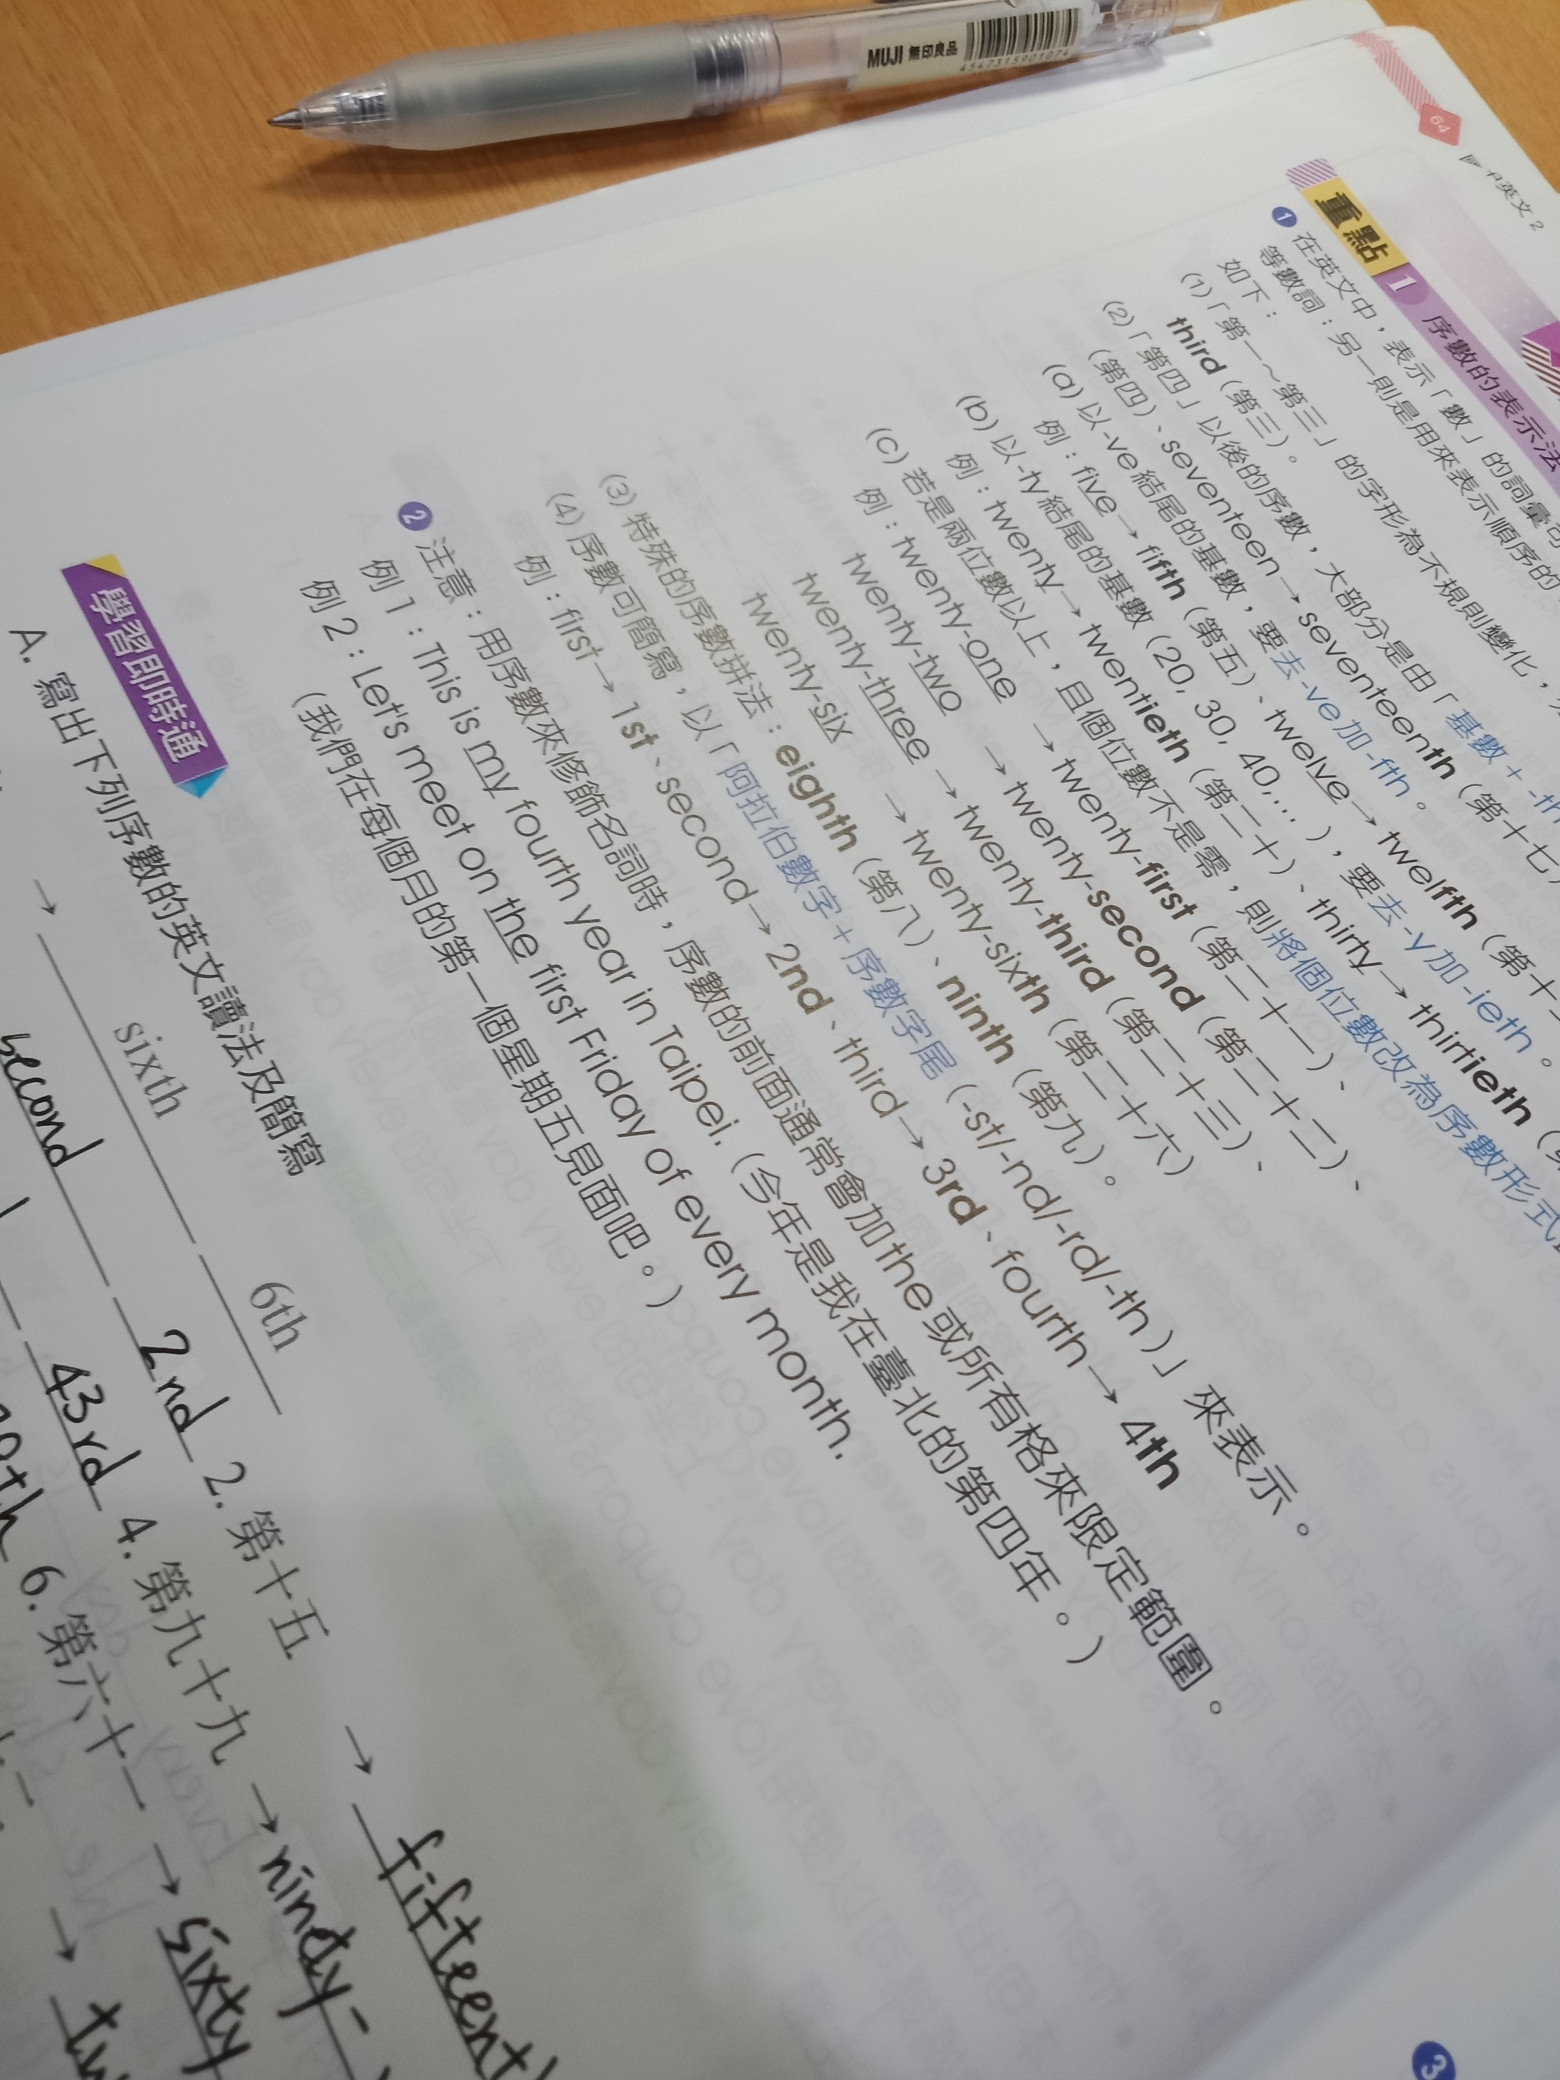 MUJI 無印良品
4547315901074
64
英文2
重點 1 序數的表示法
1 在英文中，表示「數」的詞彙可
等數詞：另一則是用來表示順序的
如下：
(1)「第一～第三」的字形為不規則變化，
third（第三）。
(2)「第四」以後的序數，大部分是由「基數+-th
（第四）、seventeen→seventeenth（第十七）
(a) 以-ve結尾的基數，要去-ve加-fth。
例：five→fifth（第五）、twelve→twelfth（第十
(b) 以-ty結尾的基數（20, 30, 40,…），要去-y加-ieth。
例：twenty→twentieth（第二十）、thirty→thirtieth
(c) 若是兩位數以上，且個位數不是零，則將個位數改為序數形式
例：twenty-one →twenty-first（第二十一）、
twenty-two →twenty-second（第二十二）、
twenty-three →twenty-third（第二十三）、
twenty-six →twenty-sixth（第二十六）
(3) 特殊的序數拼法：eighth（第八）、ninth（第九）。
(4) 序數可簡寫，以「阿拉伯數字+序數字尾（-st/-nd/-rd/-th）」來表示。
例：first→1st、second→2nd、third→3rd、fourth→4th
2 注意：用序數來修飾名詞時，序數的前面通常會加the或所有格來限定範圍。
例1：This is my fourth year in Taipei.（今年是我在臺北的第四年。）
例2：Let's meet on the first Friday of every month.
（我們在每個月的第一個星期五見面吧。）
學習即時通
A. 寫出下列序數的英文讀法及簡寫
→ sixth 6th
second 2nd 2. 第十五 → fifteenth
43rd 4. 第九十九 → nindy-
6. 第六十一 → sixty
→
3